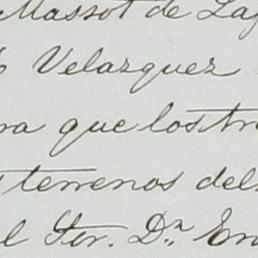 Massot de Laf
Velazquez
ra que los tre
terrenos del
el Ster. Dn. En